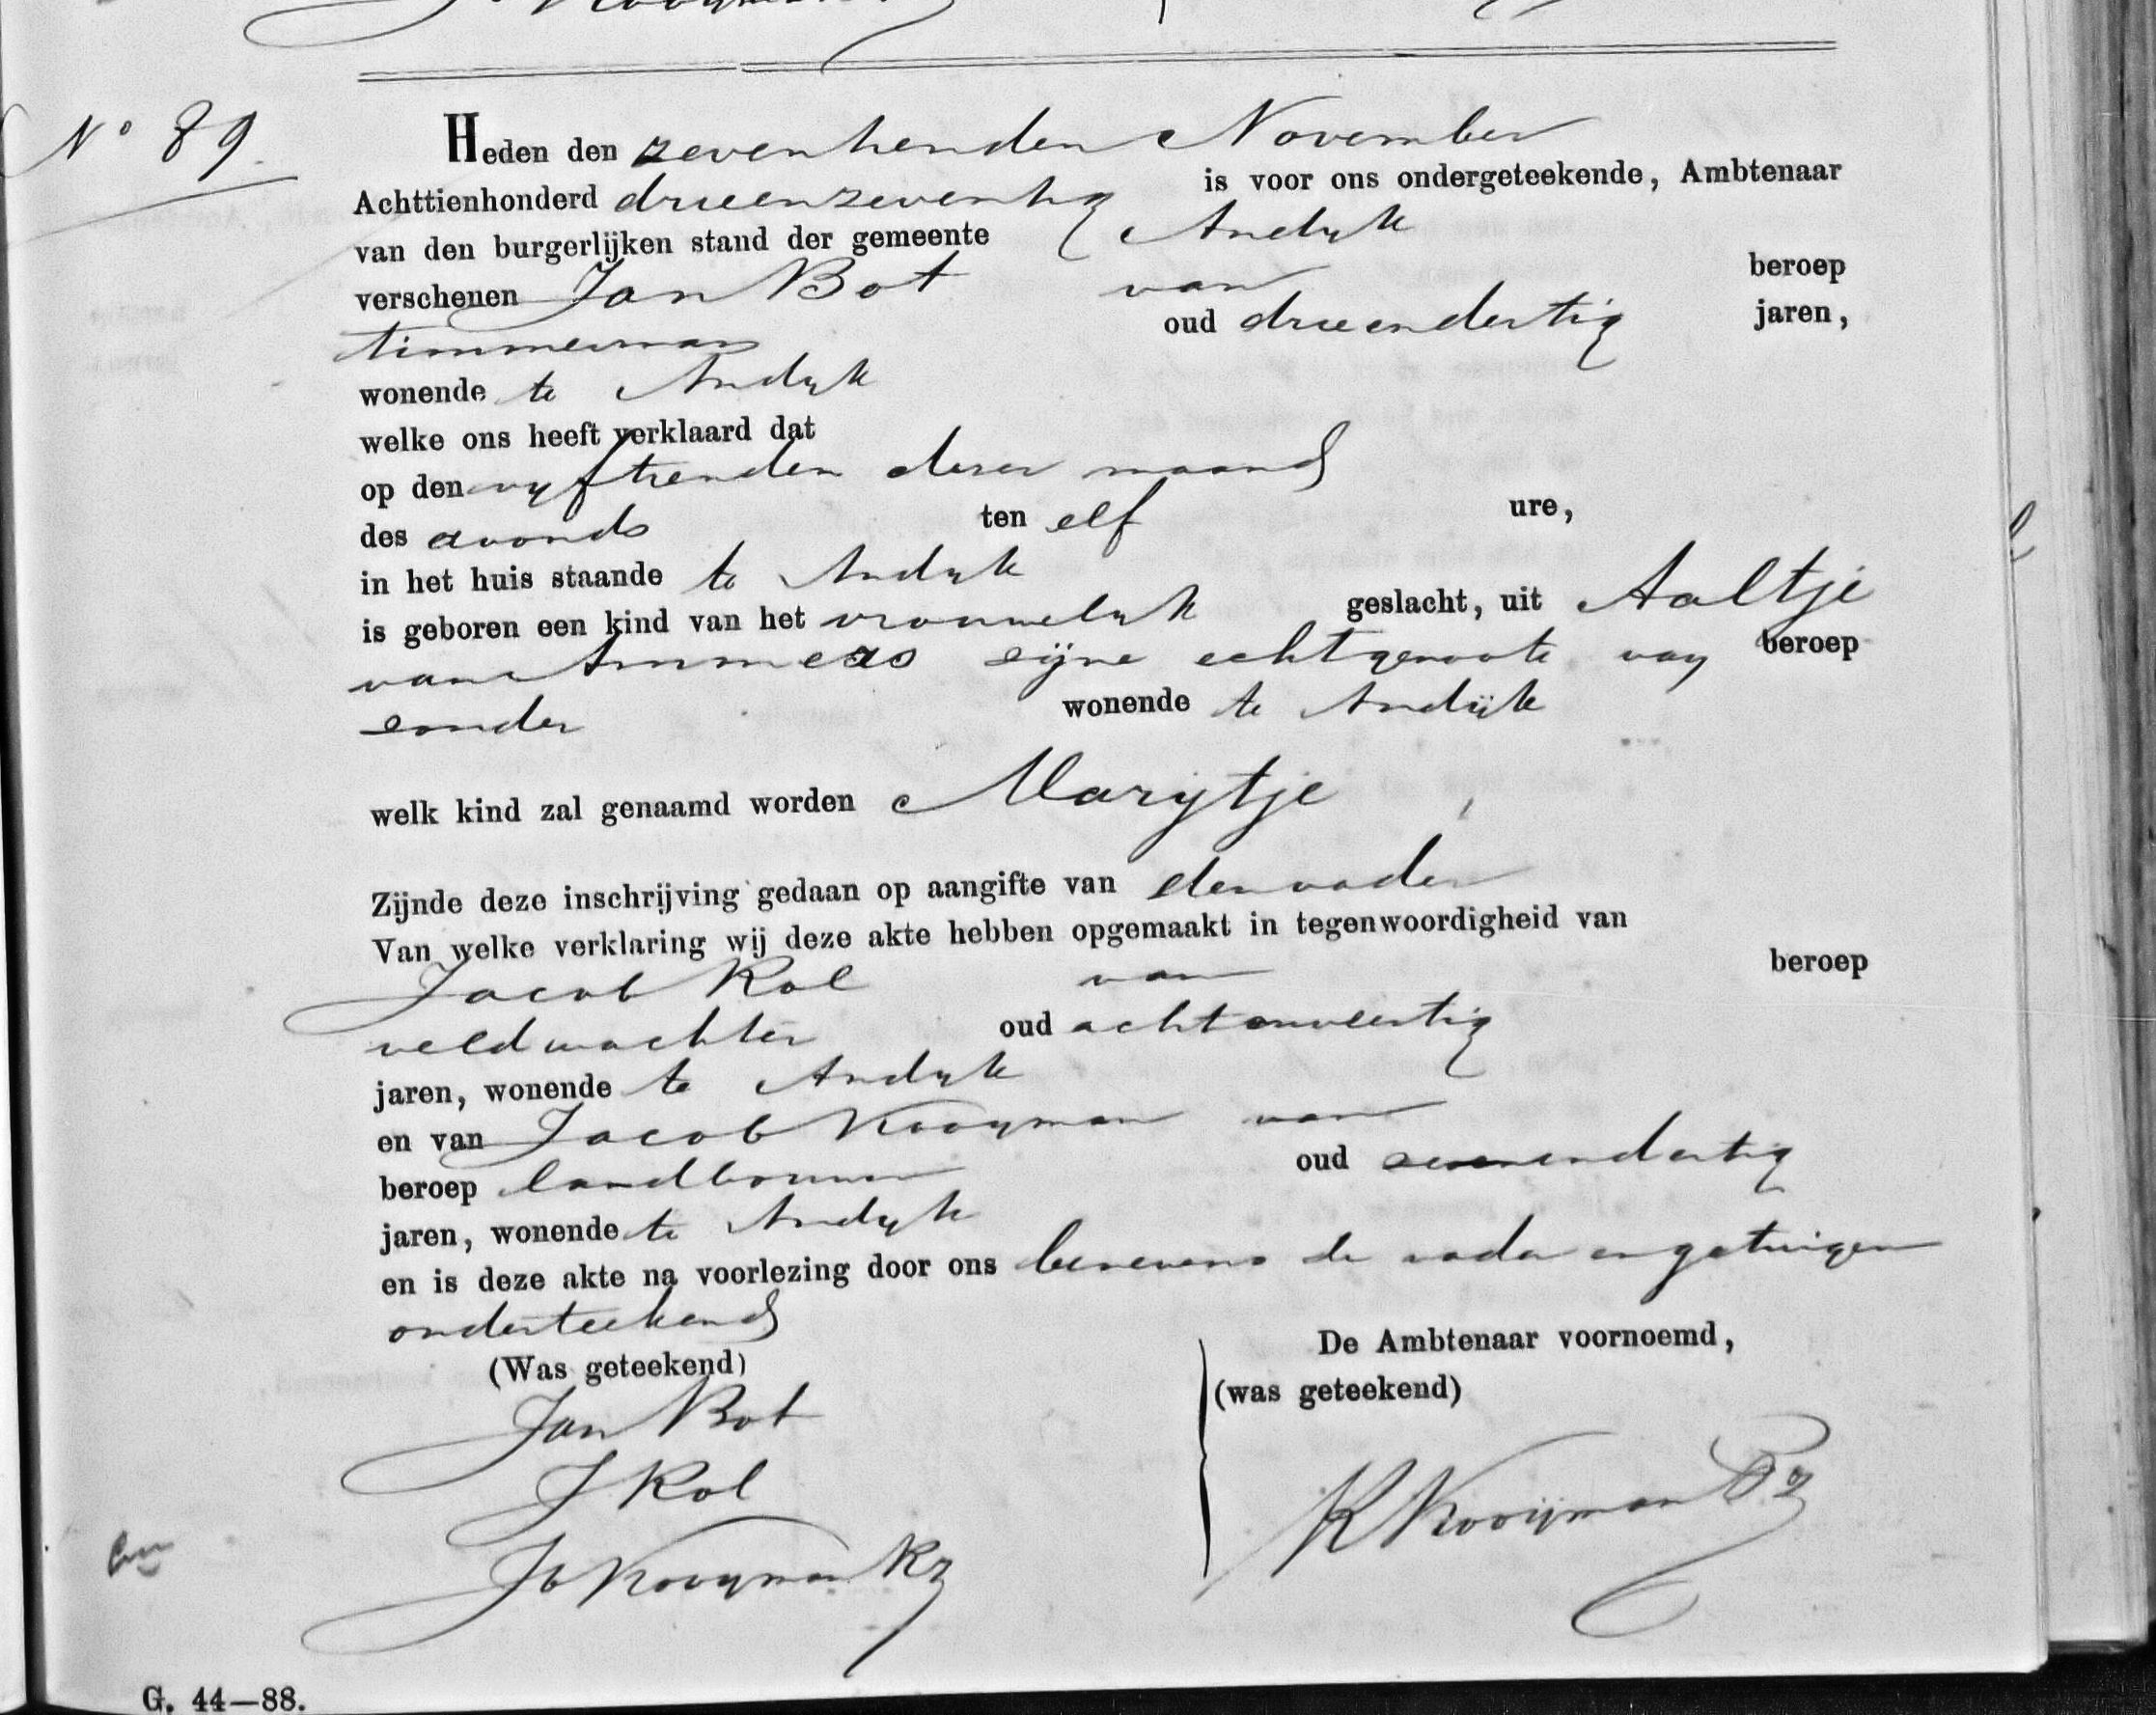 N° 89.
Heden den zeventienden November
Achttienhonderd drieenzeventig is voor ons ondergeteekende, Ambtenaar
van den burgerlijken stand der gemeente Andijk
verschenen Jan Bot van beroep
timmerman oud drieendertig jaren,
wonende te Andijk
welke ons heeft verklaard dat
op den vyftienden dezer maand
des avonds ten elf ure,
in het huis staande te Andijk
is geboren een kind van het vrouwelijk geslacht, uit Aaltje
van Ammers zijne echtgenoote van beroep
zonder wonende te Andijk
welk kind zal genaamd worden Marijtje
Zijnde deze inschrijving gedaan op aangifte van den vader
Van welke verklaring wij deze akte hebben opgemaakt in tegenwoordigheid van
Jacob Kol van beroep
veldwachter oud achtenveertig
jaren, wonende te Andijk
en van Jacob Kooyman van
beroep landbouwer oud zevenendertig
jaren, wonende te Andijk
en is deze akte na voorlezing door ons benevens de vader en getuigen
onderteekend
(Was geteekend) De Ambtenaar voornoemd,
(was geteekend)
Jan Bot
J Kol
Jb Kooyman Kz
K Kooijman Pz
G. 44—88.